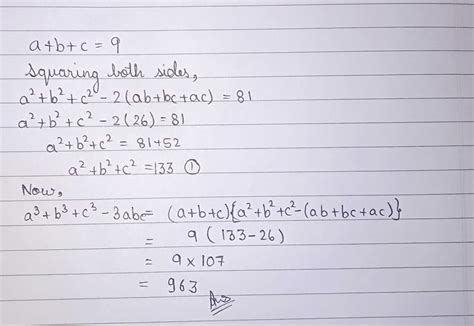 a+b+c = 9
Squaring both sides,
a²+b²+c²-2(ab+bc+ac) = 81
a²+b²+c²-2(26)=81
a²+b²+c² = 81+52
a²+b²+c² =133 ①
Now,
a³+b³+c³-3abc= (a+b+c){a²+b²+c²-(ab+bc+ac)}
= 9(133-26)
= 9×107
= 963
Ans